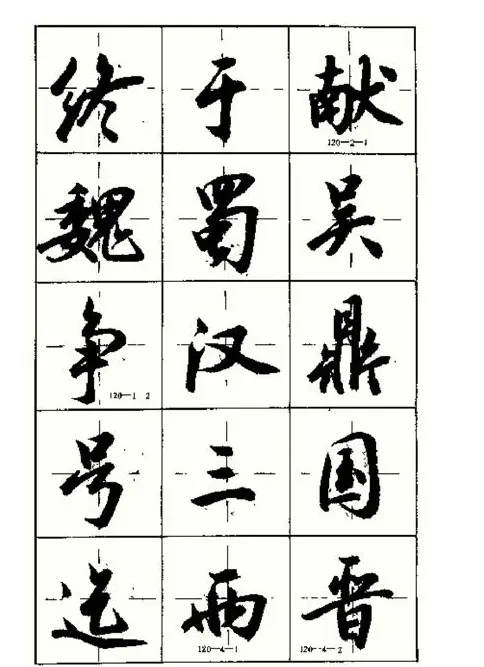 终于献
120—2—1
魏蜀吴
争汉鼎
120—1 2
号三国
迄两晋
120—4—1 120—4—2